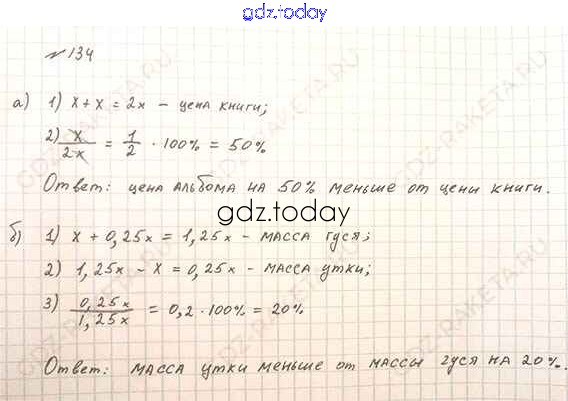 gdz.today
№ 134
а) 1) x + x = 2x – цена книги;
2) x/2x = 1/2 · 100% = 50%
Ответ: цена альбома на 50% меньше от цены книги.
gdz.today
б) 1) x + 0,25x = 1,25x – масса гуся;
2) 1,25x – x = 0,25x – масса утки;
3) 0,25x/1,25x = 0,2 · 100% = 20%
Ответ: масса утки меньше от массы гуся на 20%.
GDZ-RAKETA.RU